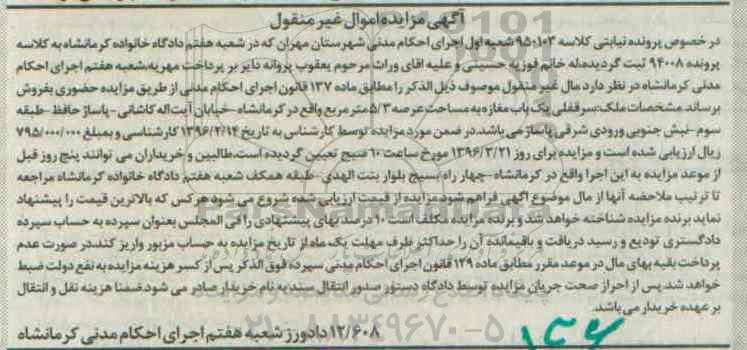 آگهی مزایده اموال غیر منقول
در خصوص پرونده نیابتی کلاسه ۹۵۰۱۰۳ شعبه اول اجرای احکام مدنی شهرستان مهران که در شعبه هفتم دادگاه خانواده کرمانشاه به کلاسه
پرونده ۹۴۰۰۸ ثبت گردیده له خانم فوزیه حسینی و علیه اقای وراث مرحوم یعقوب پروانه دایر بر پرداخت مهریه، شعبه هفتم اجرای احکام
مدنی کرمانشاه در نظر دارد مال غیر منقول موصوف ذیل الذکر را مطابق ماده ۱۳۷ قانون اجرای احکام مدنی از طریق مزایده حضوری بفروش
برساند. مشخصات ملک: سرقفلی یک باب مغازه به مساحت عرصه ۵/۳ متر مربع واقع در کرمانشاه - خیابان آیت اله کاشانی - پاساژ حافظ - طبقه
سوم - نبش جنوبی ورودی شرقی پاساژ می باشد. در ضمن مورد مزایده توسط کارشناس به تاریخ ۱۳۹۶/۲/۱۴ کارشناسی و بمبلغ ۷۹۵/۰۰۰/۰۰۰
ریال ارزیابی شده است و مزایده برای روز ۱۳۹۶/۳/۲۱ مورخ ساعت ۱۰ صبح تعیین گردیده است. طالبین و خریداران می توانند پنج روز قبل
از موعد مزایده به این اجرا واقع در کرمانشاه - چهار راه بسیج بلوار بنت الهدی - طبقه همکف شعبه هفتم دادگاه خانواده کرمانشاه مراجعه
تا ترتیب ملاحضه آنها از مال موضوع آگهی فراهم شود مزایده از قیمت ارزیابی شده شروع می شود هر کس که بالاترین قیمت را پیشنهاد
نماید برنده مزایده شناخته خواهد شد و برنده مزایده مکلف است ۱۰ درصد بهای پیشنهادی را فی المجلس بعنوان سپرده به حساب سپرده
دادگستری تودیع و رسید دریافت و باقیمانده آن را حداکثر ظرف مهلت یک ماه از تاریخ مزایده به حساب مزبور واریز کند. در صورت عدم
پرداخت بقیه بهای مال در موعد مقرر مطابق ماده ۱۲۹ قانون اجرای احکام مدنی سپرده فوق الذکر پس از کسر هزینه مزایده به نفع دولت ضبط
خواهد شد. پس از احراز صحت جریان مزایده توسط دادگاه دستور صدور انتقال سند به نام خریدار صادر می شود. ضمنا هزینه نقل و انتقال
بر عهده خریدار می باشد.
۱۲/۶۰۸ دادورز شعبه هفتم اجرای احکام مدنی کرمانشاه
۰۲۱-۸۸۳۴۹۶۷۰-۵